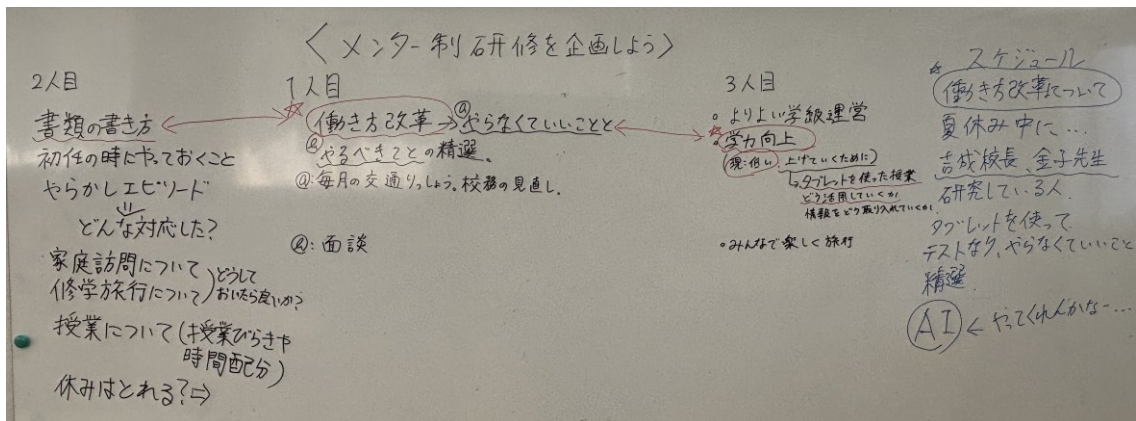 〈メンター制研修を企画しよう〉
2人目
書類の書き方
初任の時にやっておくこと
やらかしエピソード
どんな対応した?
家庭訪問について
修学旅行について
どうして
おいたら良いか?
授業について(授業びらきや
時間配分)
休みはとれる?⇨
1人目
働き方改革→ⓐやらなくていいことと
ⓑやるべきことの精選。
ⓐ:毎月の交通りっしょう。校務の見直し。
ⓑ:面談
3人目
。よりよい学級運営
。学力向上
(現:低い、上げていくために)
↳タブレットを使った授業
どう活用していくか
情報をどう取り入れていくか
。みんなで楽しく旅行
☆スケジュール
働き方改革について
夏休み中に…
吉成校長、金子先生
研究している人。
タブレットを使って
テストなり、やらなくていいこと
精選。
AI ← やってくれんかなー…